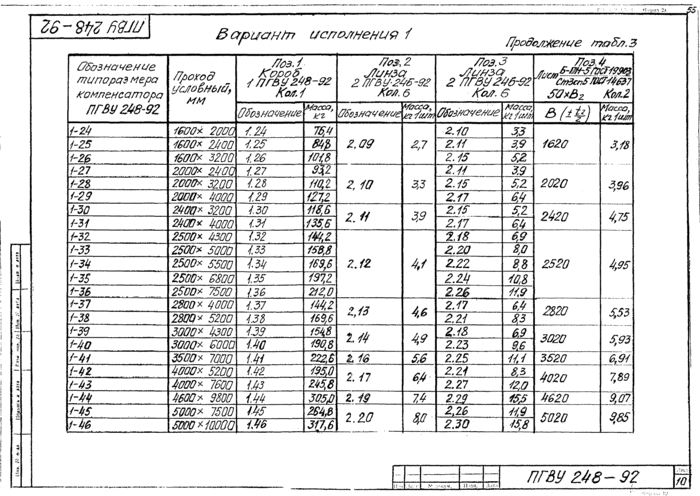 55
ПГВУ 248-92
Вариант исполнения 1
Продолжение табл. 3
Обозначение типоразмера компенсатора ПГВУ 248-92
Проход условный, мм
Поз. 1 Короб 1 ПГВУ 248-92 Кол. 1
Поз. 2 Линза 2 ПГВУ 246-92 Кол. 6
Поз. 3 Линза 2 ПГВУ 246-92 Кол. 6
Поз. 4 Лист Б-ПН-5 ГОСТ 19903 Ст3сп5 ГОСТ 14637 50×B₂ Кол. 2
Обозначение Масса, кг Обозначение Масса, кг 1 шт Обозначение Масса, кг 1 шт В Масса, кг 1 шт
1-24 1600×2000 1.24 76,4 2.09 2,7 2.10 3,3 1620 3,18
1-25 1600×2400 1.25 84,8 2.11 3,9
1-26 1600×3200 1.26 101,8 2.15 5,2
1-27 2000×2400 1.27 93,2 2.10 3,3 2.11 3,9 2020 3,96
1-28 2000×3200 1.28 110,2 2.15 5,2
1-29 2000×4000 1.29 127,2 2.17 6,4
1-30 2400×3200 1.30 118,6 2.11 3,9 2.15 5,2 2420 4,75
1-31 2400×4000 1.31 135,6 2.17 6,4
1-32 2500×4300 1.32 144,2 2.12 4,1 2.18 6,9 2520 4,95
1-33 2500×5000 1.33 158,8 2.20 8,0
1-34 2500×5500 1.34 169,6 2.22 8,8
1-35 2500×6800 1.35 197,2 2.24 10,8
1-36 2500×7500 1.36 212,0 2.26 11,9
1-37 2800×4000 1.37 144,2 2.13 4,6 2.17 6,4 2820 5,53
1-38 2800×5200 1.38 169,6 2.21 8,3
1-39 3000×4300 1.39 154,8 2.14 4,9 2.18 6,9 3020 5,93
1-40 3000×6000 1.40 190,8 2.23 9,6
1-41 3500×7000 1.41 222,6 2.16 5,6 2.25 11,1 3520 6,91
1-42 4000×5200 1.42 195,0 2.17 6,4 2.21 8,3 4020 7,89
1-43 4000×7600 1.43 245,8 2.27 12,0
1-44 4600×9800 1.44 305,0 2.19 7,4 2.29 15,5 4620 9,07
1-45 5000×7500 1.45 264,8 2.20 8,0 2.26 11,9 5020 9,85
1-46 5000×10000 1.46 317,6 2.30 15,8
ПГВУ 248-92
10